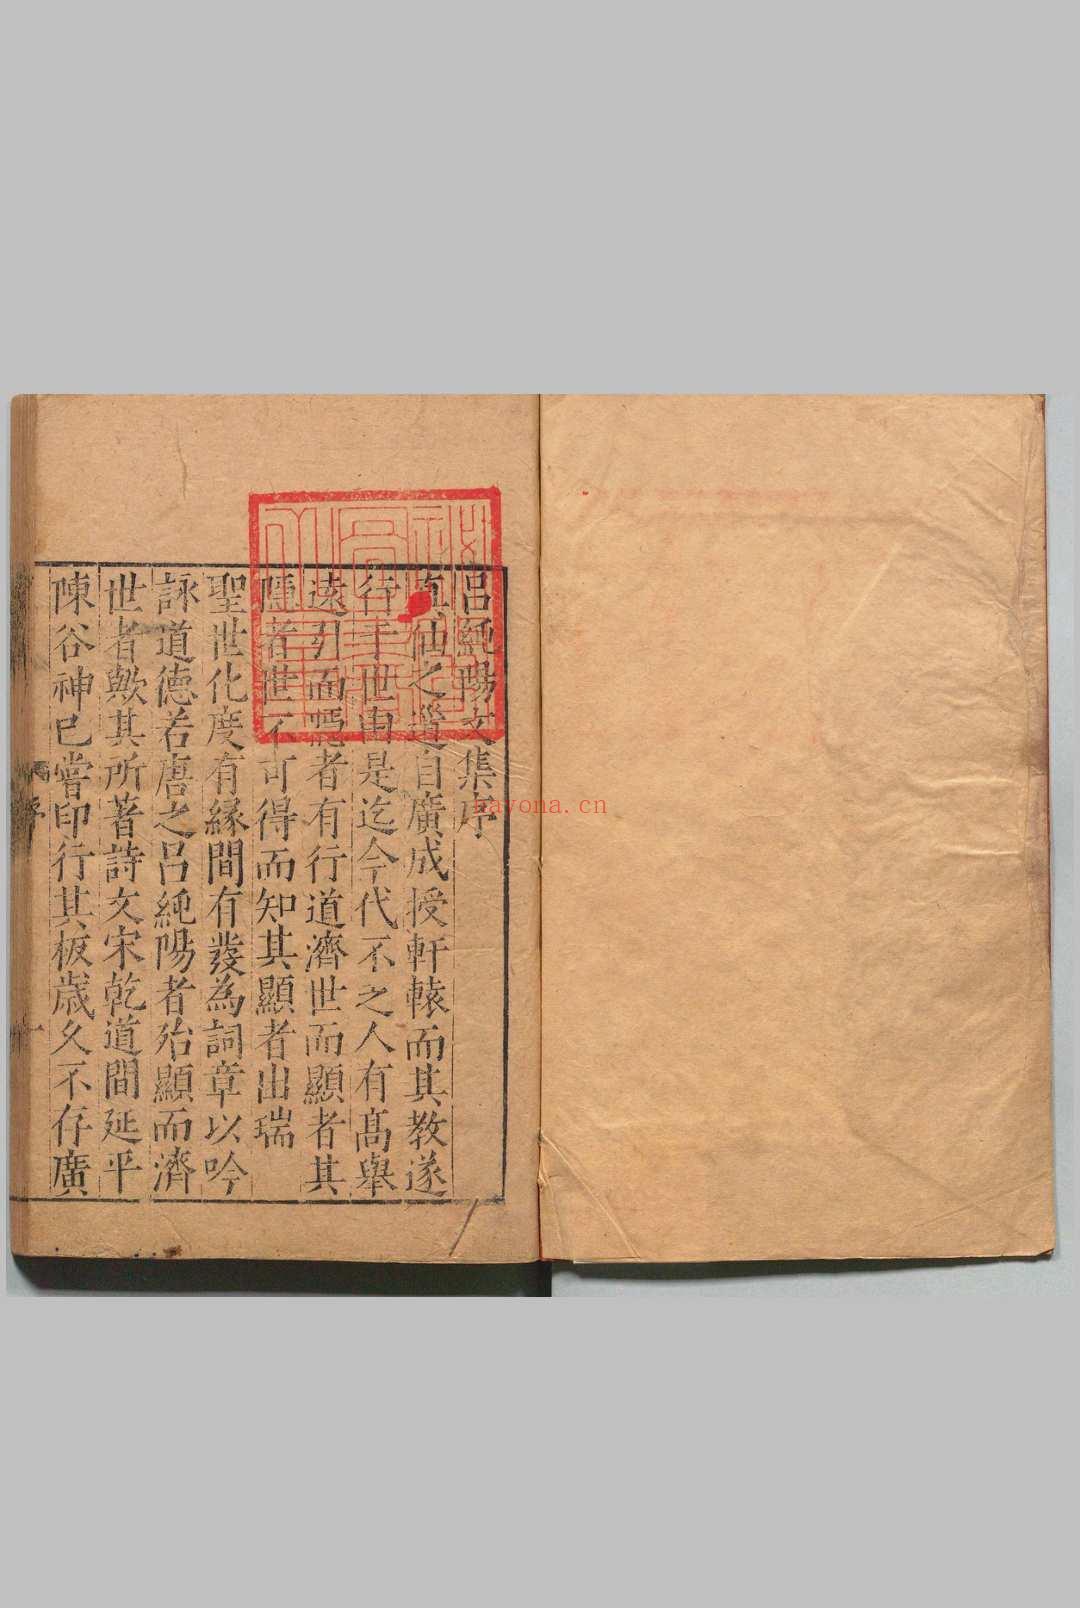 呂純陽文集序
真仙之道自廣成授軒轅而其教遂
行于世由是迄今代不乏人有高舉
遠引而隱者有行道濟世而顯者其
隱者世不可得而知其顯者出瑞
聖世化度有緣間有發為詞章以吟
詠道德若唐之呂純陽者殆顯而濟
世者歟其所著詩文宋乾道間延平
陳谷神已嘗印行其板歲久不存廣
序
一
hayona.cn